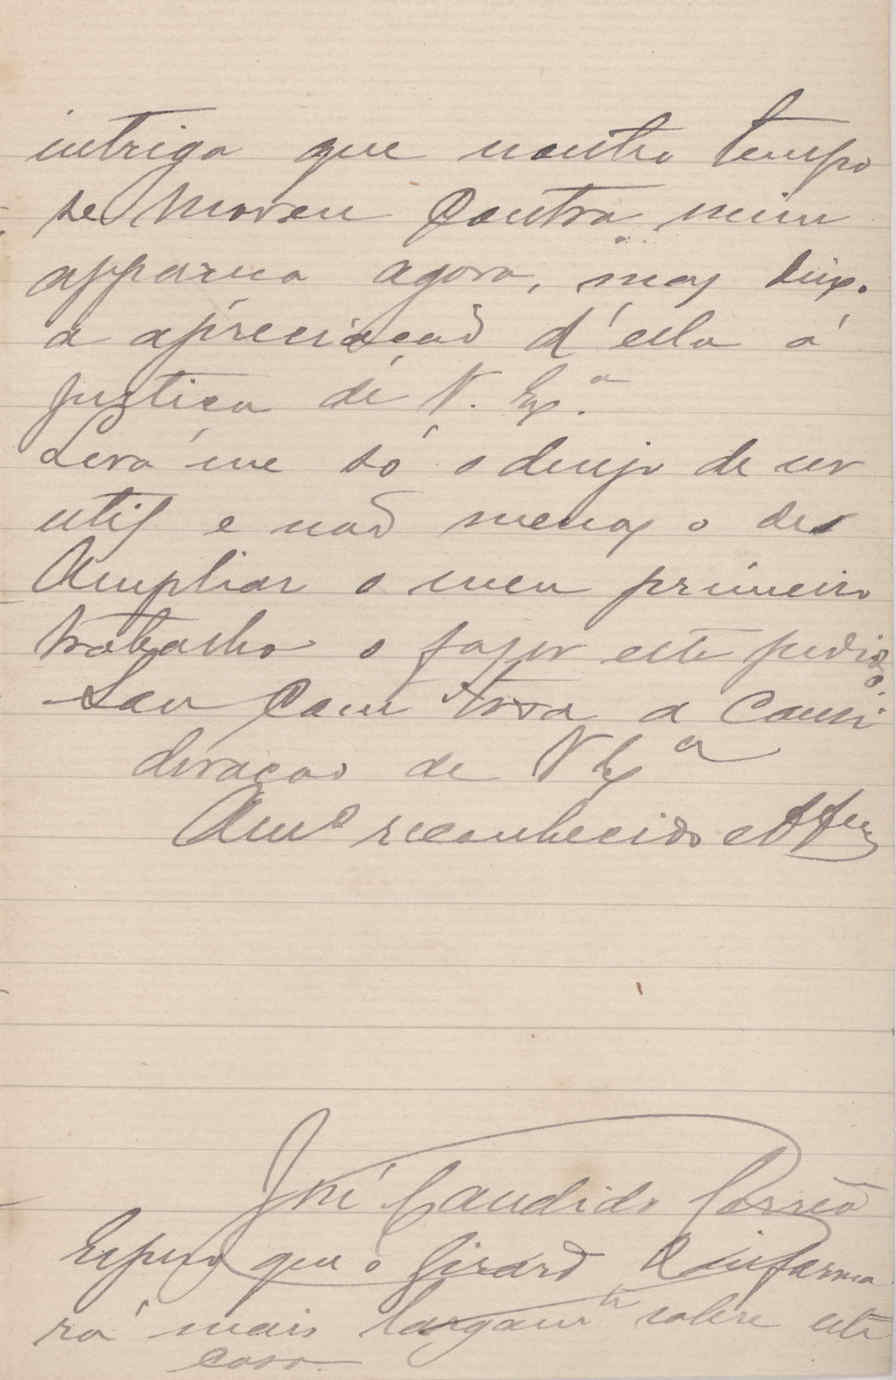 intriga que noutro tempo
se moveu contra mim
appareça agora, mas deixo
a apreciação d'ella á
justiça de V. Exª.
Leva me só o desejo de ser
util e não menos o de
Ampliar o meu primeiro
trabalho o fazer este pedido.
Sou com toda a consi
deração de V Exª
Amº reconhecido e
José Candido Corrêa
Espero que o Girard o informa
rá mais largamte sobre este
caso.